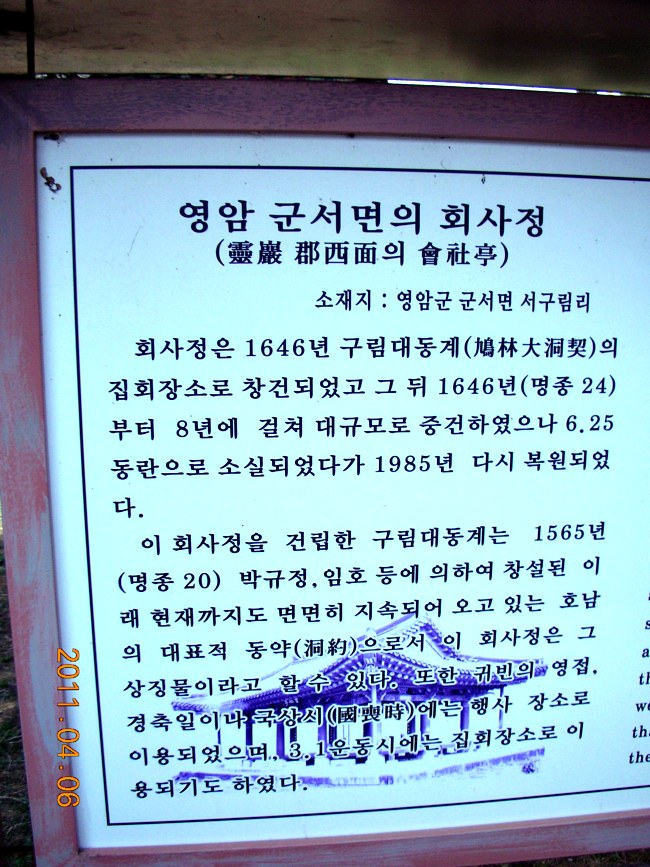 영암 군서면의 회사정
(靈巖 郡西面의 會社亭)
소재지 : 영암군 군서면 서구림리
회사정은 1646년 구림대동계(鳩林大洞契)의
집회장소로 창건되었고 그 뒤 1646년(명종 24)
부터 8년에 걸쳐 대규모로 중건하였으나 6.25
동란으로 소실되었다가 1985년 다시 복원되었
다.
이 회사정을 건립한 구림대동계는 1565년
(명종 20) 박규정,임호 등에 의하여 창설된 이
래 현재까지도 면면히 지속되어 오고 있는 호남
의 대표적 동약(洞約)으로서 이 회사정은 그
상징물이라고 할 수 있다. 또한 귀빈의 영접,
경축일이나 국상시(國喪時)에는 행사 장소로
이용되었으며, 3.1운동시에는 집회장소로 이
용되기도 하였다.
2011.04.06